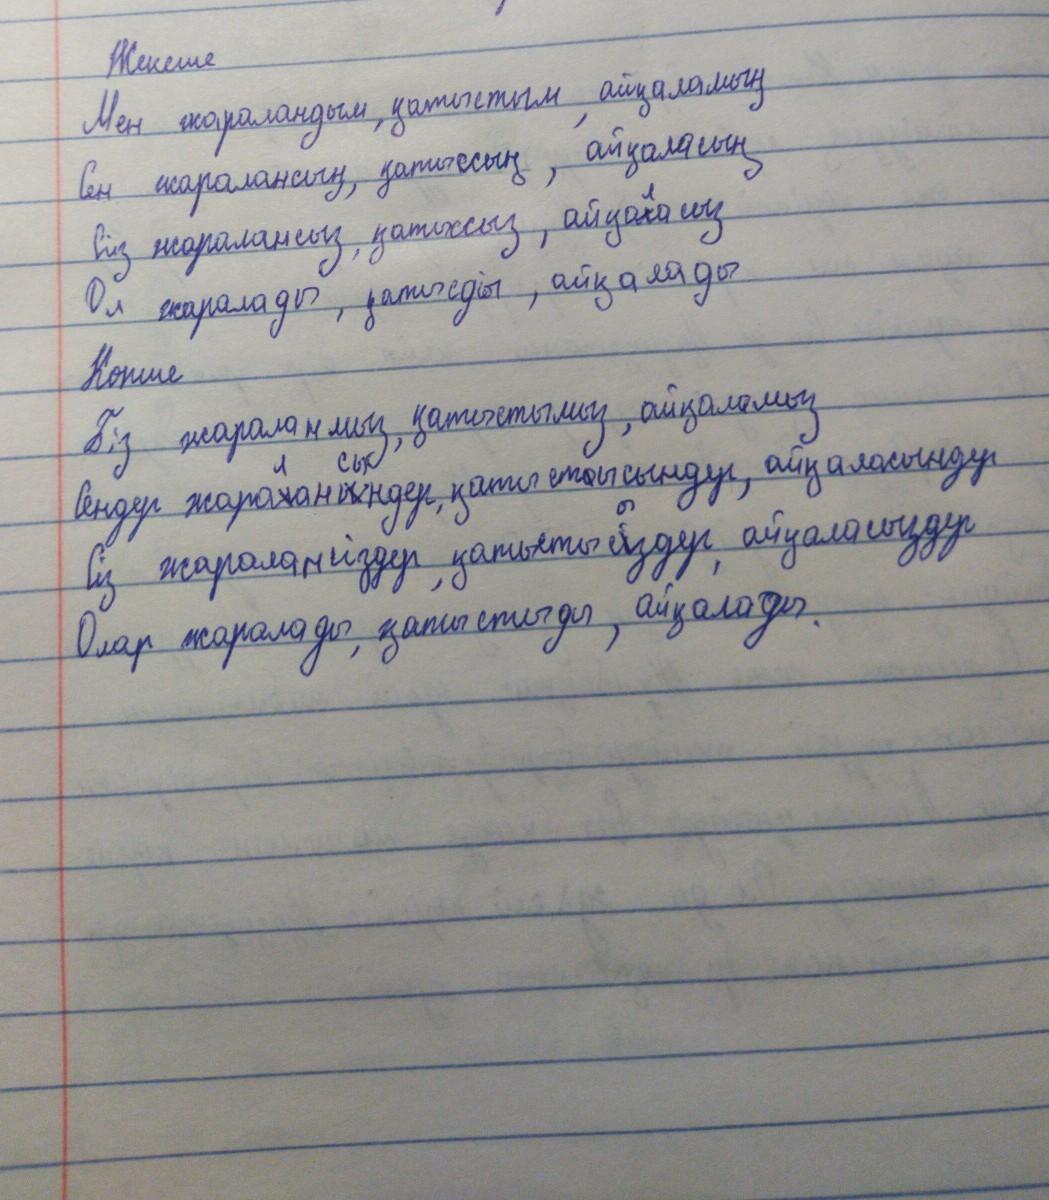 Жекеше
Мен жараландым, қатыстым, айқаламын
Сен жаралансың, қатыссың, айқаласың
Сіз жаралансыз, қатыссыз, айқаласыз
Ол жаралады, қатысды, айқалады
Копше
Біз жараланмыз, қатыстымыз, айқаламыз
Сендер жаралансыңдер, қатыстысындер, айқаласындер
Сіз жаралансіздер, қатыстыңыздер, айқаласыздер
Олар жаралады, қатыстыды, айқалады.